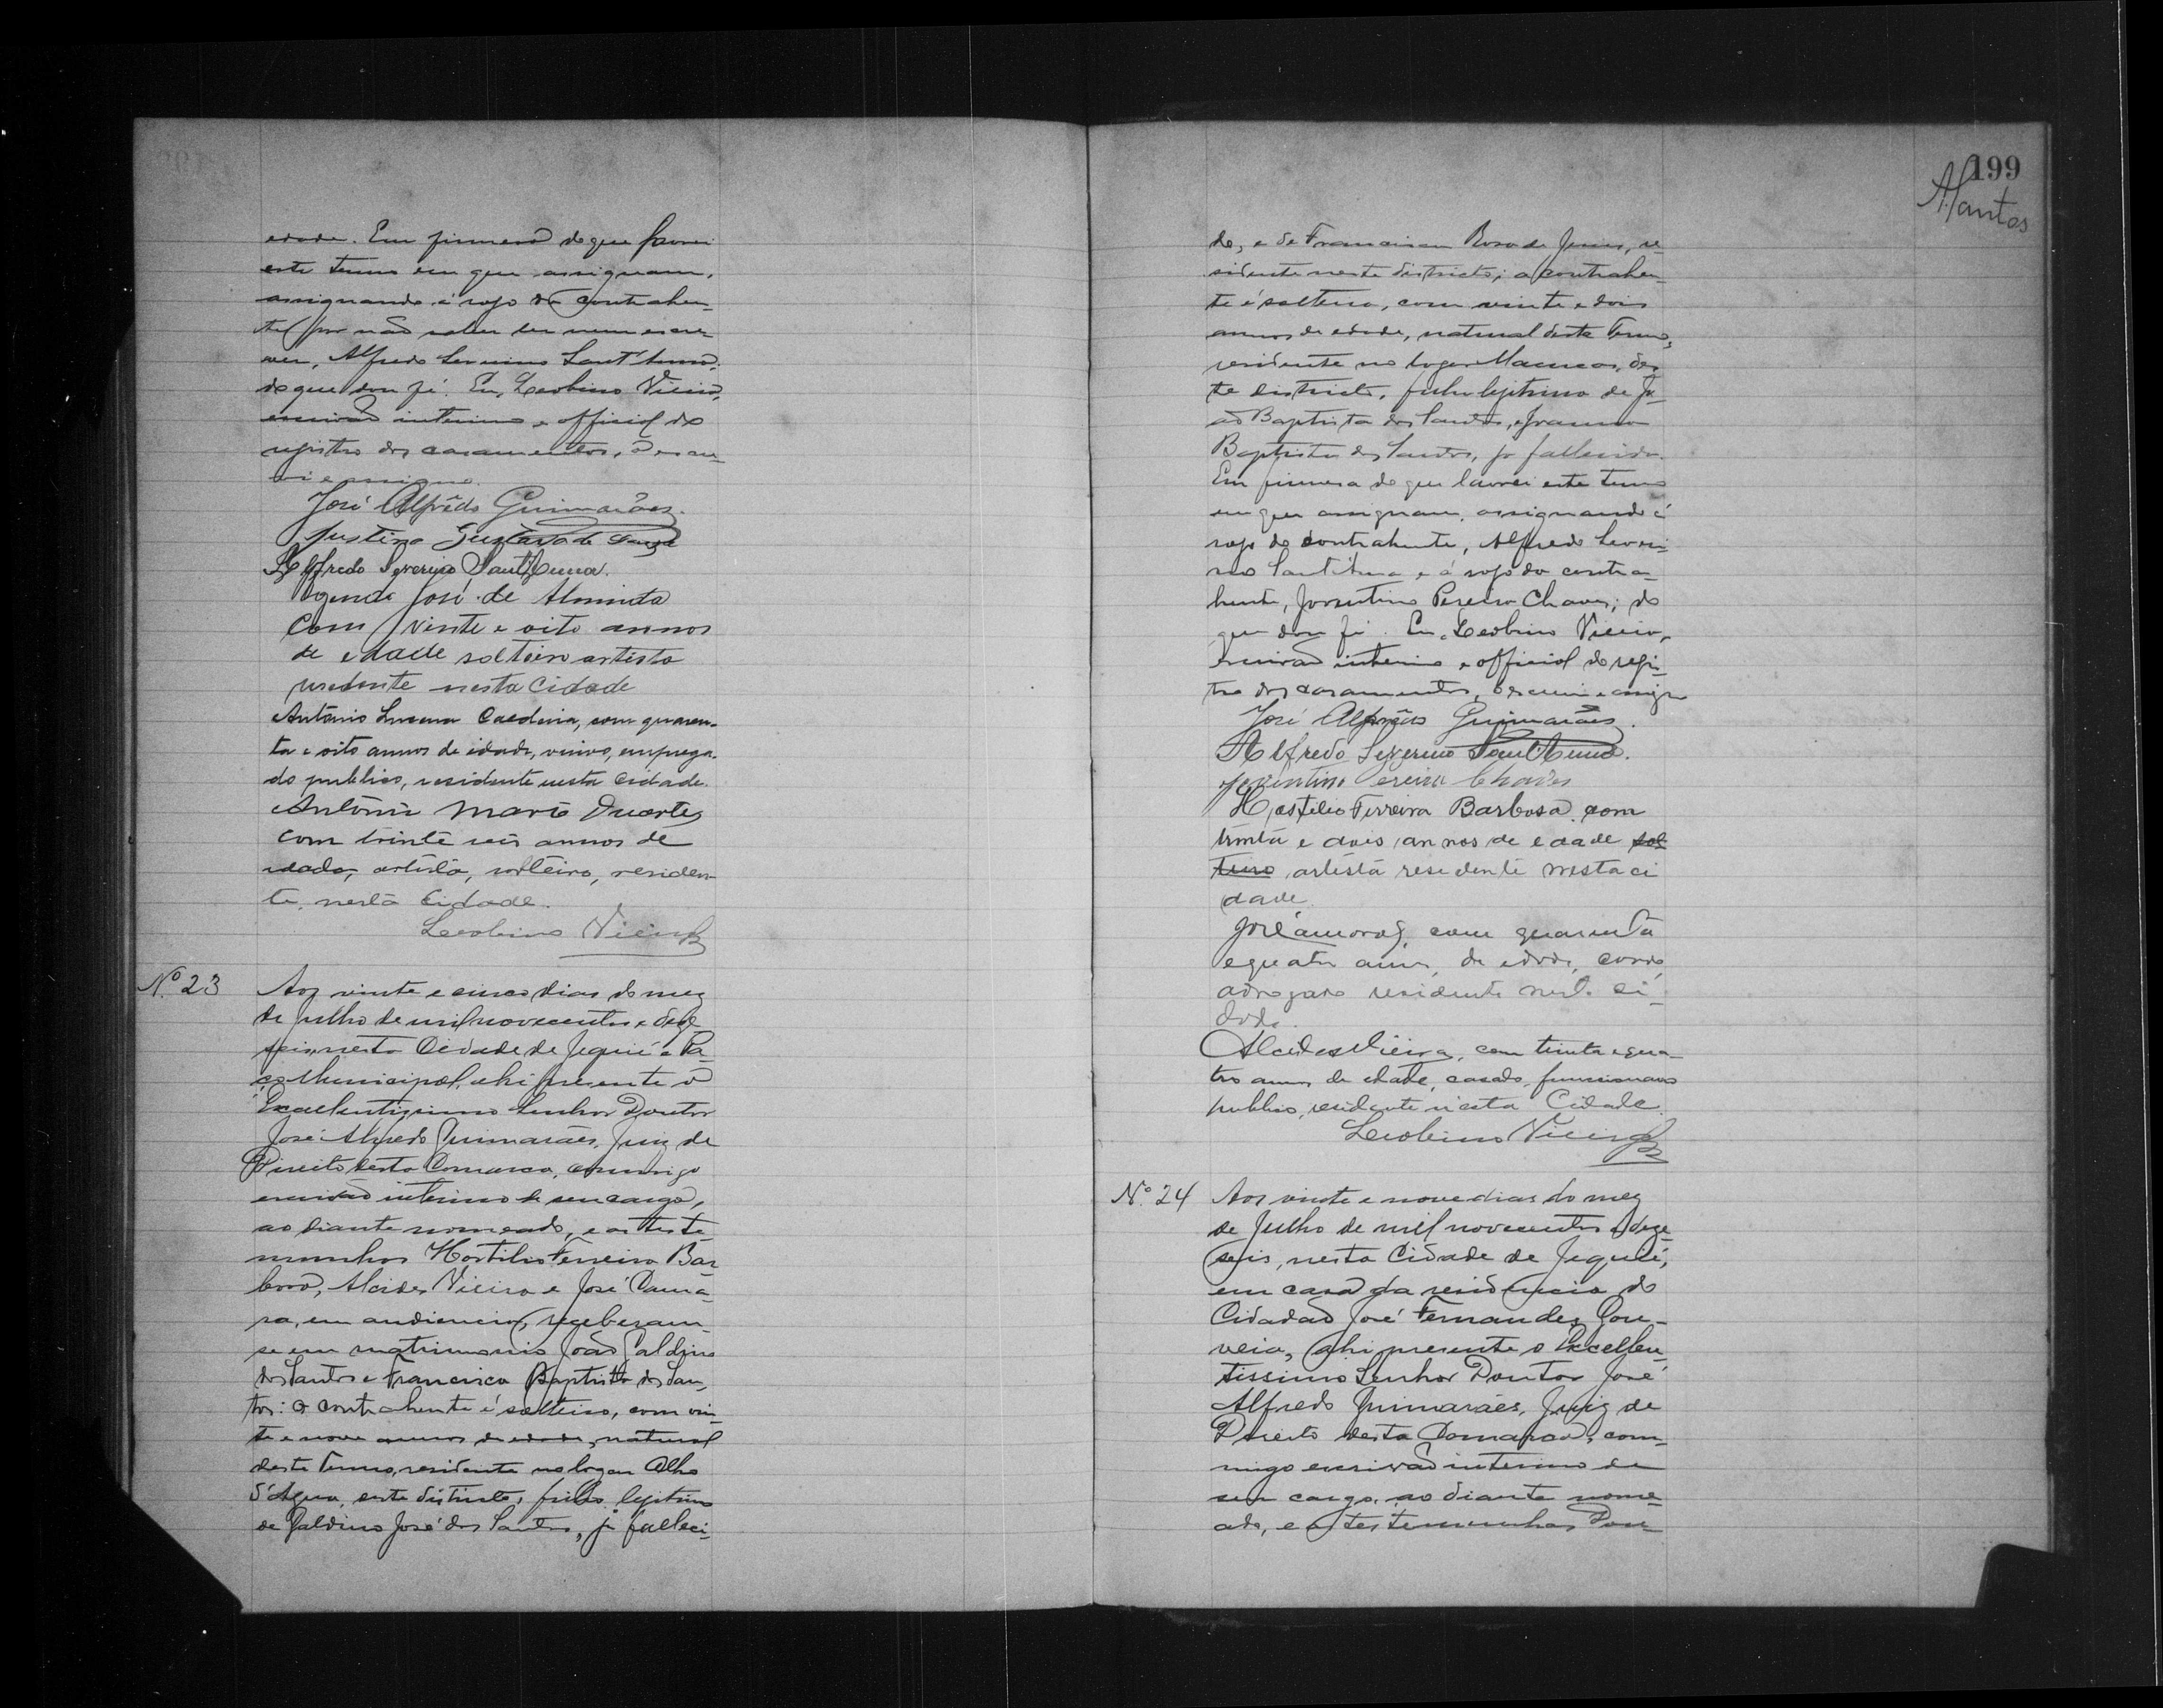 edade. Em firmesa do que lavrei
este termo em que assignam,
assignando á rogo da contrahen-
te (por não saber ler nem escre-
ver, Alfredo Severino Sant'Anna,
do que dou fé. Eu, Leobino Vieira,
escrivão interino e official do
registro dos casamentos, o escre-
vi e assigno.
José Alfrêdo Guimarães.
Justino Gustavo de Souza
Alfredo Severino Sant'Anna.
José de Almeida
com vinte e oito annos
de edade solteiro artista
residente nesta Cidade
Antônio Lucena Caldeira, com quaren-
ta e oito annos de idade, viuvo, emprega-
do publico, residente nesta Cidade.
Antônio Mario Duarte
com trinta seis annos de
idade, artista, solteiro, residen-
te, nesta Cidade.
Leobino Vieira
Nº 23
Aos vinte e cinco dias do mez
de Julho de mil novecentos e deze-
seis, nesta Cidade de Jequié e Pa-
ço Municipal, ahi presente o
Excellentissimo Senhor Doutor
José Alfredo Guimarães, Juiz de
Direito desta Comarca, commigo
escrivão interino de seu cargo,
ao diante nomeado, e as teste-
munhas Hostilio Ferreira Bar-
bosa, Alcides Vieira e José Cama-
ra, em audiencia, receberam-
se em matrimonio João Galdino
dos Santos e Francisca Baptista dos San-
tos: o contrahente é solteiro, com vin-
te e nove annos de edade, natural
deste Termo, residente no logar Olho
d'Agua, deste districto, filho legitimo
de Galdino José dos Santos, já falleci-
199
do, e de Francisca Rosa de Jesus, re-
sidente neste districto; a contrahen-
te é solteira, com vinte e dois
annos de edade, natural deste Termo,
residente no logar Macucos, des-
te districto, filha legitima de Jo-
ão Baptista dos Santos, e Joanna
Baptista dos Santos, já fallecida.
Em firmesa do que lavrei este termo
em que assignam, assignando á
rogo do contrahente, Alfredo Severi-
no Sant'Anna e á rogo da contra-
hente, Juventino Pereira Chaves; do
que dou fé. Eu, Leobino Vieira,
escrivão interino e official do regis-
tro dos casamentos, o escrevi e assigno
José Alfrêdo Guimarães.
Alfredo Severino Sant'Anna.
Juventino Pereira Chaves
Hostilio Ferreira Barbosa, com
trinta e dois annos de edade sol
teiro artista residente nesta ci
dade.
José Camara, com quarenta
e quatro annos de edade, casado,
advogado residente nesta ci-
dade.
Alcides Vieira, com trinta e qua-
tro annos de edade, casado, funcionario
publico, residente n'esta Cidade.
Leobino Vieira
Nº 24
Aos vinte e nove dias do mez
de Julho de mil novecentos e deze-
seis, nesta Cidade de Jequié,
em casa da residencia do
Cidadão José Fernandes Gou-
veia, ahi presente o Excellen-
tissimo Senhor Doutor José
Alfredo Guimarães, Juiz de
Direito desta Comarca, com-
migo escrivão interino de
seu cargo, ao diante nome-
ado, e as testemunhas Dou-